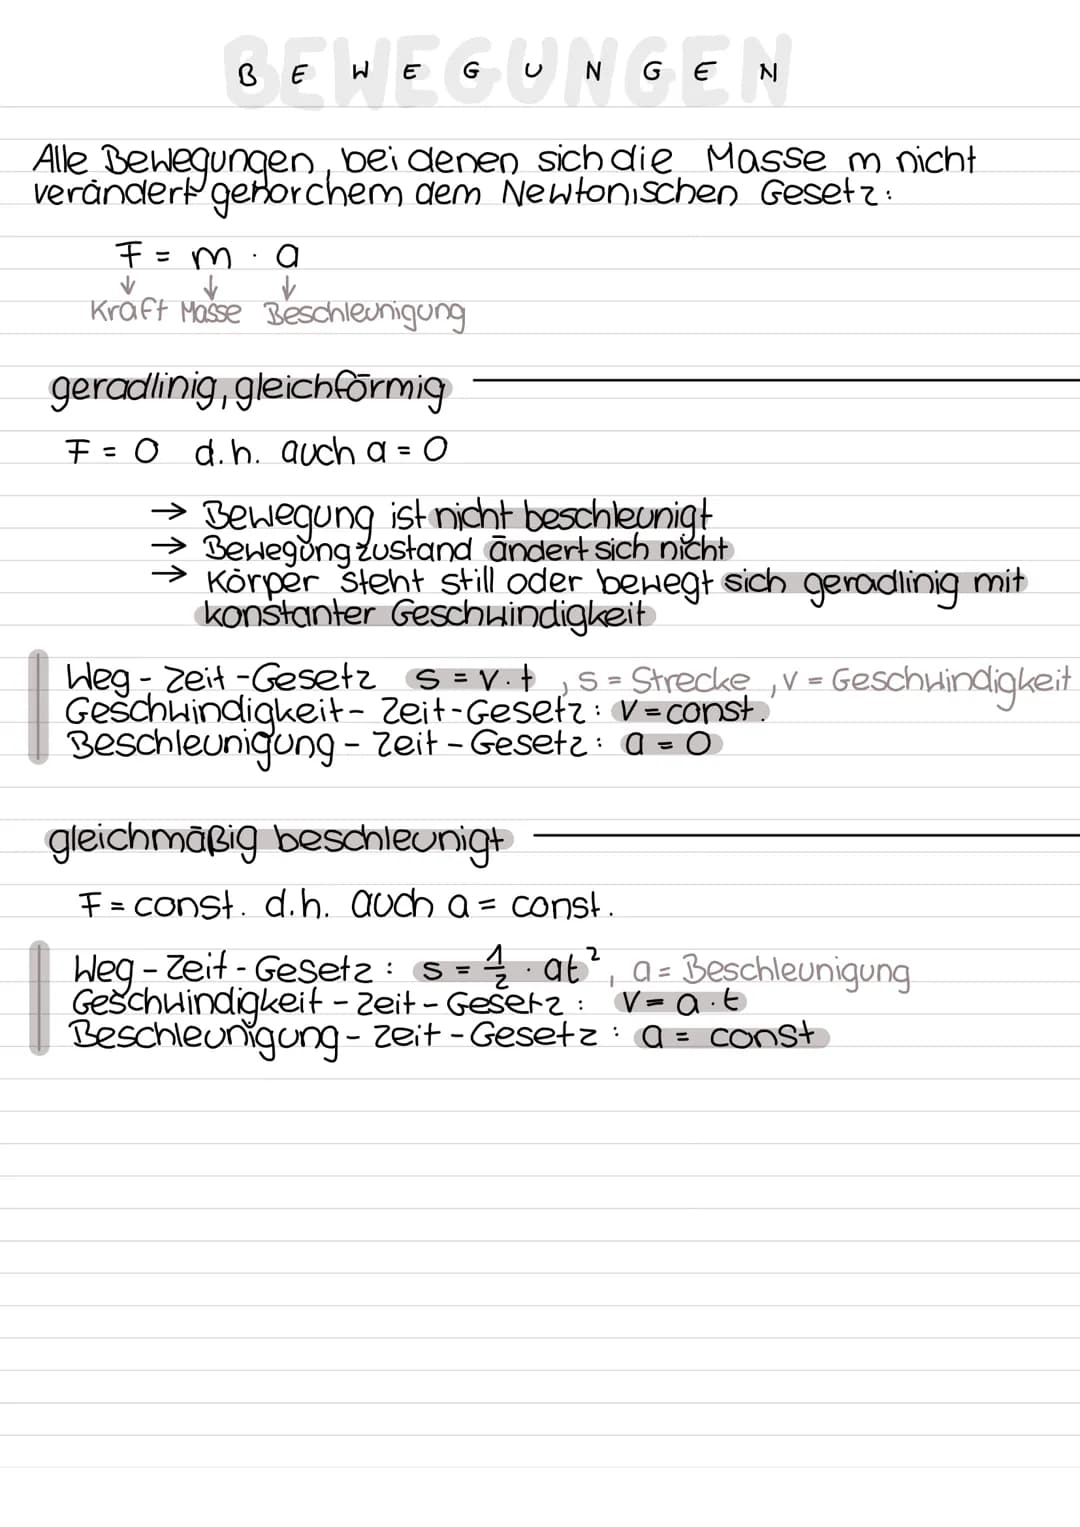 BEWEGUNGEN
Alle Bewegungen, bei denen sich die Masse m nicht
verändert gehorchem dem Newtonischen Gesetz:
F = m · a
↓ ↓ ↓
Kraft Masse Beschleunigung
geradlinig, gleichförmig
F = 0 d.h. auch a = 0
→ Bewegung ist nicht beschleunigt
→ Bewegungzustand ändert sich nicht
→ Körper steht still oder bewegt sich geradlinig mit
konstanter Geschwindigkeit
Weg-Zeit-Gesetz s = v · t , s = Strecke , v = Geschwindigkeit
Geschwindigkeit-Zeit-Gesetz: v = const.
Beschleunigung-Zeit-Gesetz: a = 0
gleichmäßig beschleunigt
F = const. d.h. auch a = const.
Weg-Zeit-Gesetz: s = 1/2 · at², a = Beschleunigung
Geschwindigkeit-Zeit-Gesetz: v = a · t
Beschleunigung-Zeit-Gesetz: a = const